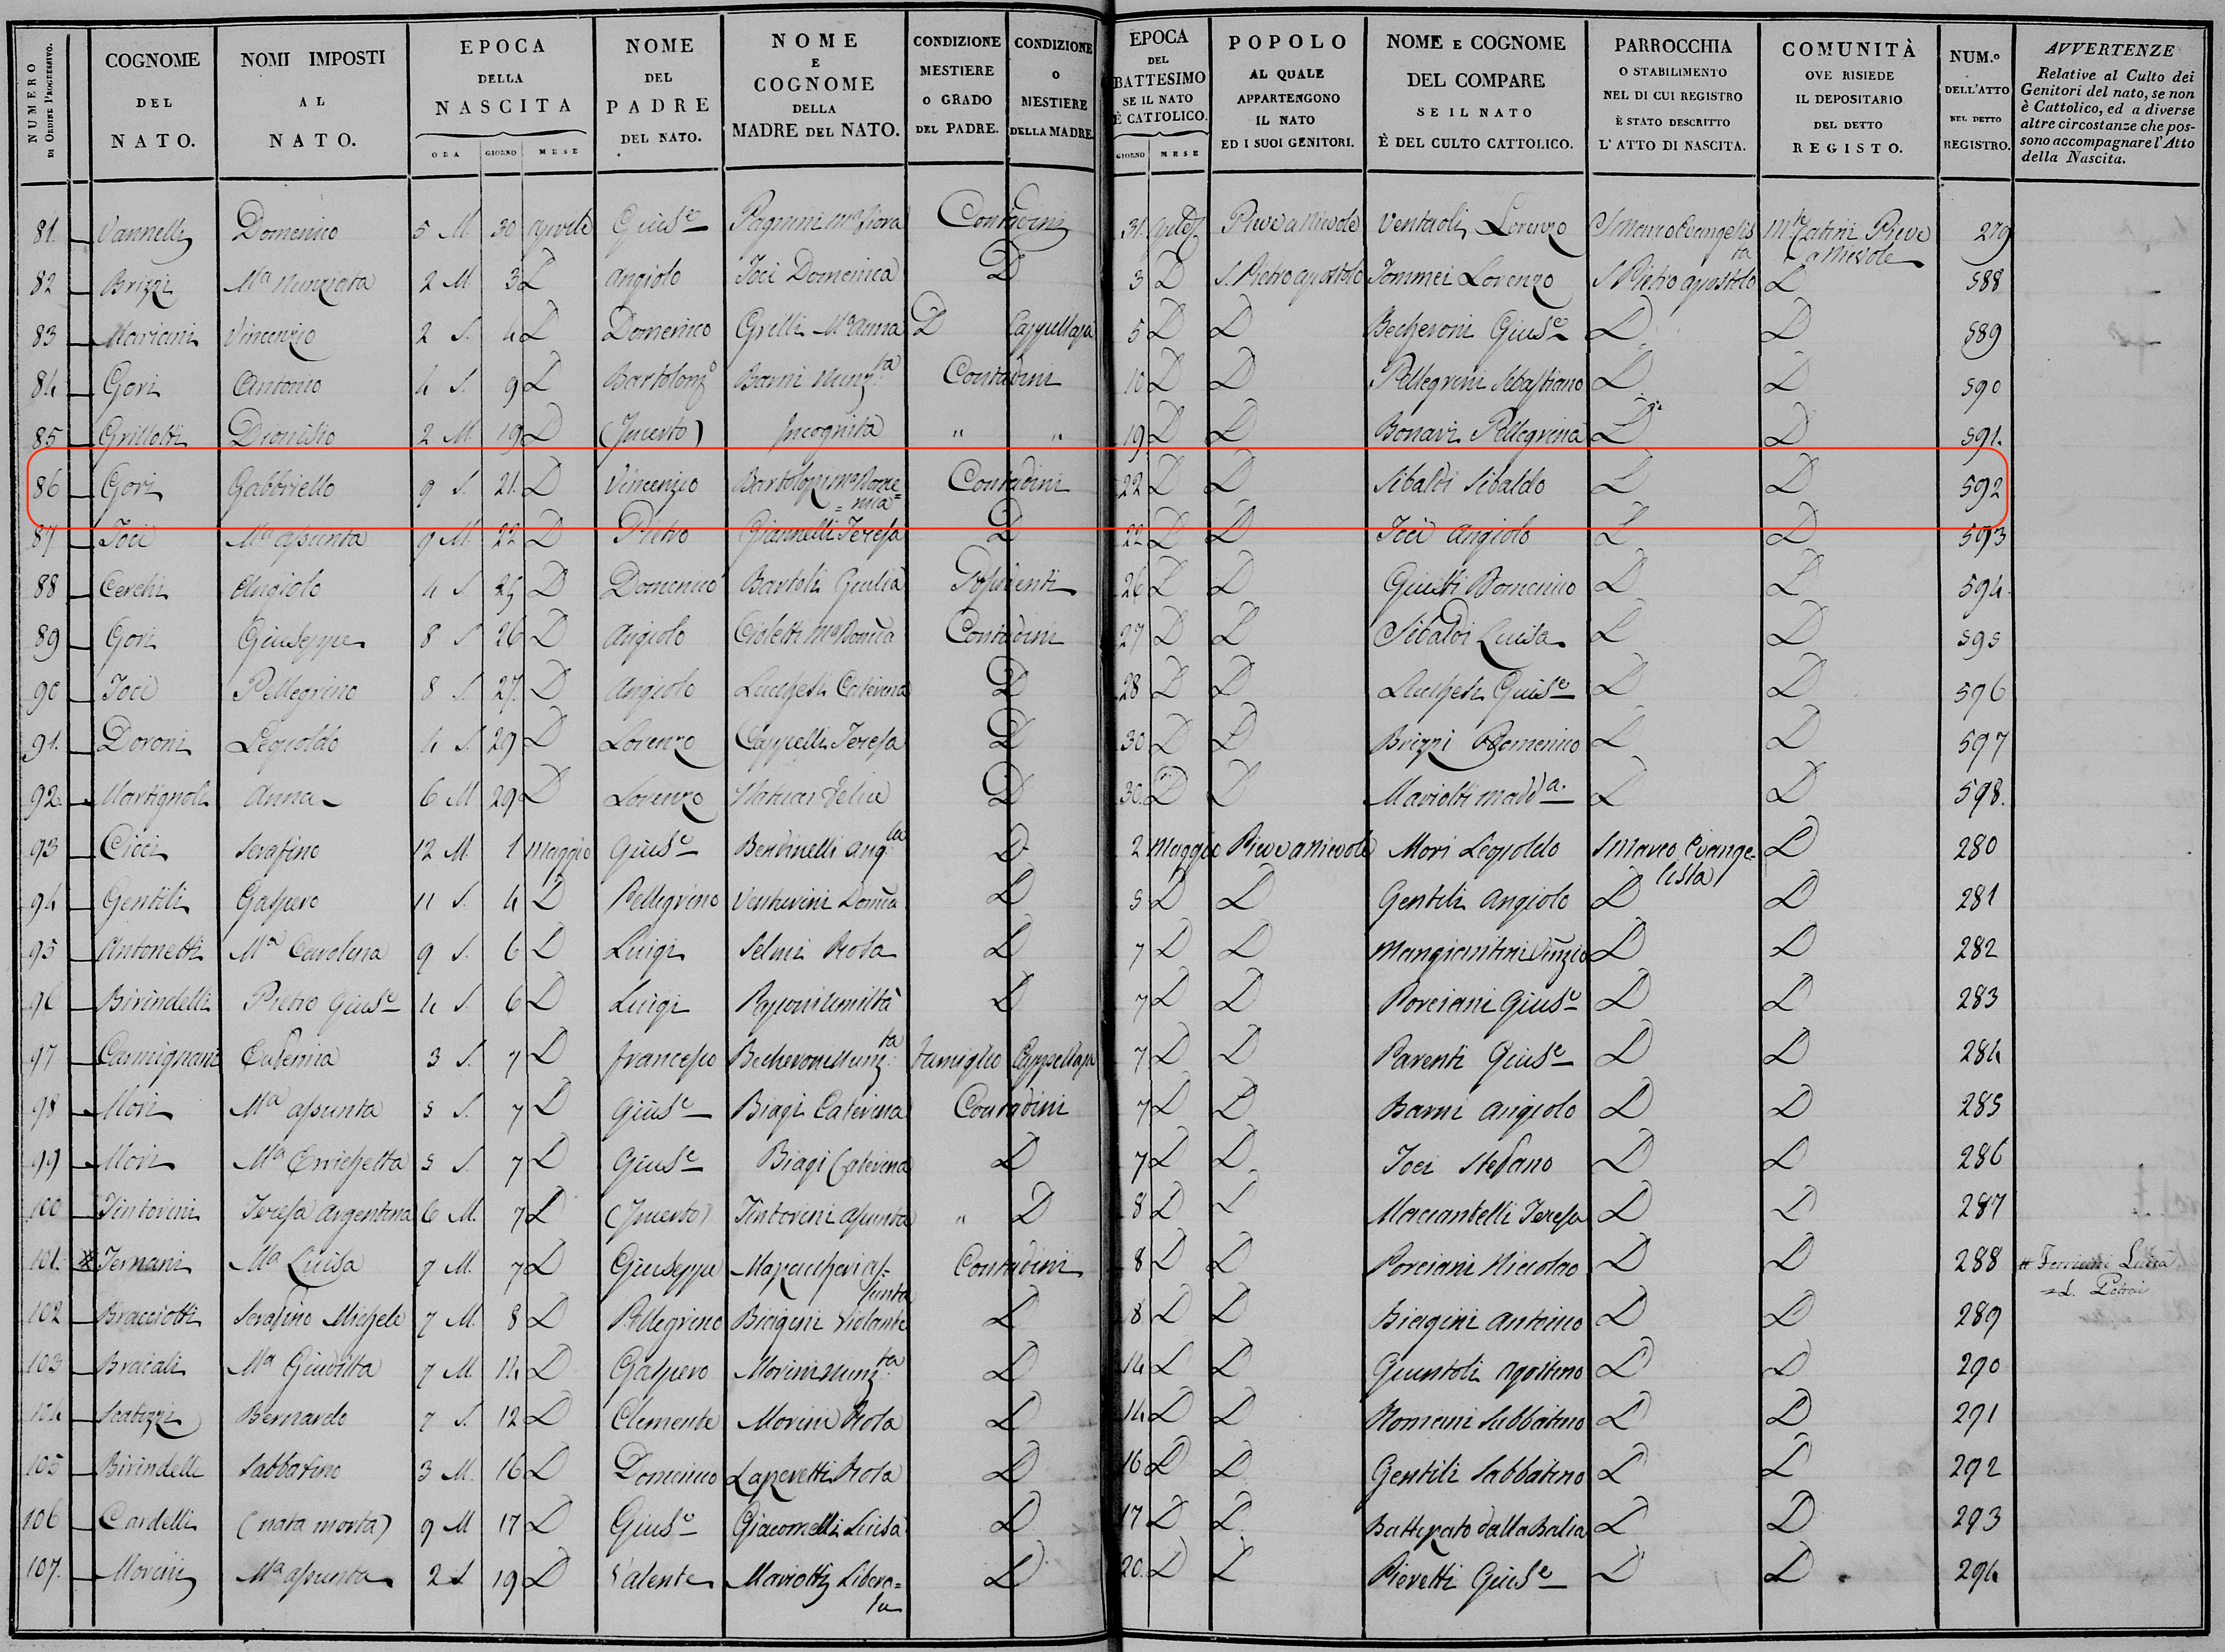 NUMERO DI ORDINE PROGRESSIVO. COGNOME DEL NATO. NOMI IMPOSTI AL NATO. EPOCA DELLA NASCITA ORA GIORNO MESE NOME DEL PADRE DEL NATO. NOME E COGNOME DELLA MADRE DEL NATO. CONDIZIONE MESTIERE O GRADO DEL PADRE. CONDIZIONE O MESTIERE DELLA MADRE. EPOCA DEL BATTESIMO SE IL NATO È CATTOLICO. GIORNO MESE POPOLO AL QUALE APPARTENGONO IL NATO ED I SUOI GENITORI. NOME E COGNOME DEL COMPARE SE IL NATO È DEL CULTO CATTOLICO. PARROCCHIA O STABILIMENTO NEL DI CUI REGISTRO È STATO DESCRITTO L'ATTO DI NASCITA. COMUNITÀ OVE RISIEDE IL DEPOSITARIO DEL DETTO REGISTO. NUM.º DELL'ATTO NEL DETTO REGISTRO. AVVERTENZE Relative al Culto dei Genitori del nato, se non è Cattolico, ed a diverse altre circostanze che possono accompagnare l'Atto della Nascita.
81. Vannelli Domenico 5 M. 30 aprile Giusᵉ Pagnini Mª Fiora Contadini 31 Pieve a Nievole Lorenzo S Marco Evangelista Mᵗᵉ Catini Pieve a Nievole 279
82 Brizzi Mª Nunziata 2 M 3 D angiolo Joci Domenica D 3 D S. Pietro apostolo Jommei Lorenzo S Pietro apostolo D 588
83 Mariani Vincenzio 2 S. 4 D Domenico Grilli Mª Anna D Cappellaja 5 D D Becheroni Giusᵉ D D 589
84 Gori Antonio 4 S. 9 D Bartolomº Barni Nunzᵗᵃ Contadini 10 D D Pellegrini Sebastiano D D 590
85 Grillotti Dionisio 2 M. 19 D (Incerto) Incognita " " 19 D D Bonari Pellegrina D D 591.
86 Gori Gabbriello 9 S. 21. D Vincenzio Bartolozi Mª Dome=nica Contadini 22 D D Sibaldi Sibaldo D D 592
87 Joci Mª assunta 9 M. 22 D Pietro Giannelli Teresa D 22 D D Joci Angiolo D D 593
88 Cerchi Angiolo 4 S 25 D Domenico Bartoli Giulia Possidenti 26 D D Giusti Domenico D D 594
89 Gori Giuseppe 8 S 26 D Angiolo Cioletti Mª Domᶜᵃ Contadini 27 D D Sibaldi Luisa D D 595
90 Joci Pellegrino 8 S. 27. D Angiolo Lucchesi Caterina D 28 D D Lucchesi Giusᵉ D D 596
91. Doroni Leopoldo 4 S. 29 D Lorenzo Cappelli Teresa D 30 D D Brizzi Domenico D D 597
92. Martignoli Anna 6 M 29 D Lorenzo D 30. D D Mariotti Maddª. D D 598.
93 Cicci Serafino 12 M. 1 Maggio Giusᵉ Bertinelli Angˡᵃ D 2 Maggio Pieve a Nievole Mori Leopoldo S Marco Evange-lista D 280
94 Gentili Gaspero 11 S. 4 D Pellegrino Venturini Domᶜᵃ D 5 D D Gentili Angiolo D D 281
95 Antonetti Mª Carolina 9 S. 6 D Luigi Selmi Rosa D 7 D D D D 282
96 Birindelli Pietro Giusᵉ 4 S. 6 D Luigi Umiltà D 7 D D Porciani Giusᵉ D D 283
97 Carmignani Eufemia 3 S. 7 D francesco Becheroni Nunzᵗᵃ famiglio Cappellaja 7 D D Parenti Giusᵉ D D 284
98 Mori Mª assunta 5 S. 7 D Giusᵉ Biagi Caterina Contadini 7 D D Barni Angiolo D D 285
99 Mori Mª Errichetta 5 S. 7 D Giusᵉ Biagi Caterina D 7 D D. Joci Stefano D D 286
100 Tintorini Teresa Argentina 6 M. 7 D (Incerto) Tintorini Assunta " D 8 D D Marcantelli Teresa D D 287
101. * Mª Luisa 7 M. 7 D Giuseppe as=sunta Contadini 8 D D Porciani Niccolao D D 288
102 Bracciotti Serafino Michele 7 M. 8 D Pellegrino Biagini Violante D 8 D D Biagini Antonio D D 289
103 Bracali Mª Giuditta 7 M. 14 D Gaspero Morini Nunzᵗᵃ D 14 D D Guntoli Agostino D D 290
104 Scatizzi Bernardo 7 S. 12 D Clemente Morini Rosa D 14 D D Romani Sabbatino D D 291
105 Birindelli Sabbatino 3 M. 16 D Domenico Rosa D 16 D D Gentili Sabbatino D D 292
106 Cardelli (nata morta) 9 M 17 D Giusᵉ Giacomelli Luisa D 17 D D. Battezzato dalla Balia D D 293
107. Morini Mª assunta 2 S 19 D Valente Mariotti Libera=ta D 20. D D Pieretti Giusᵉ D D 294